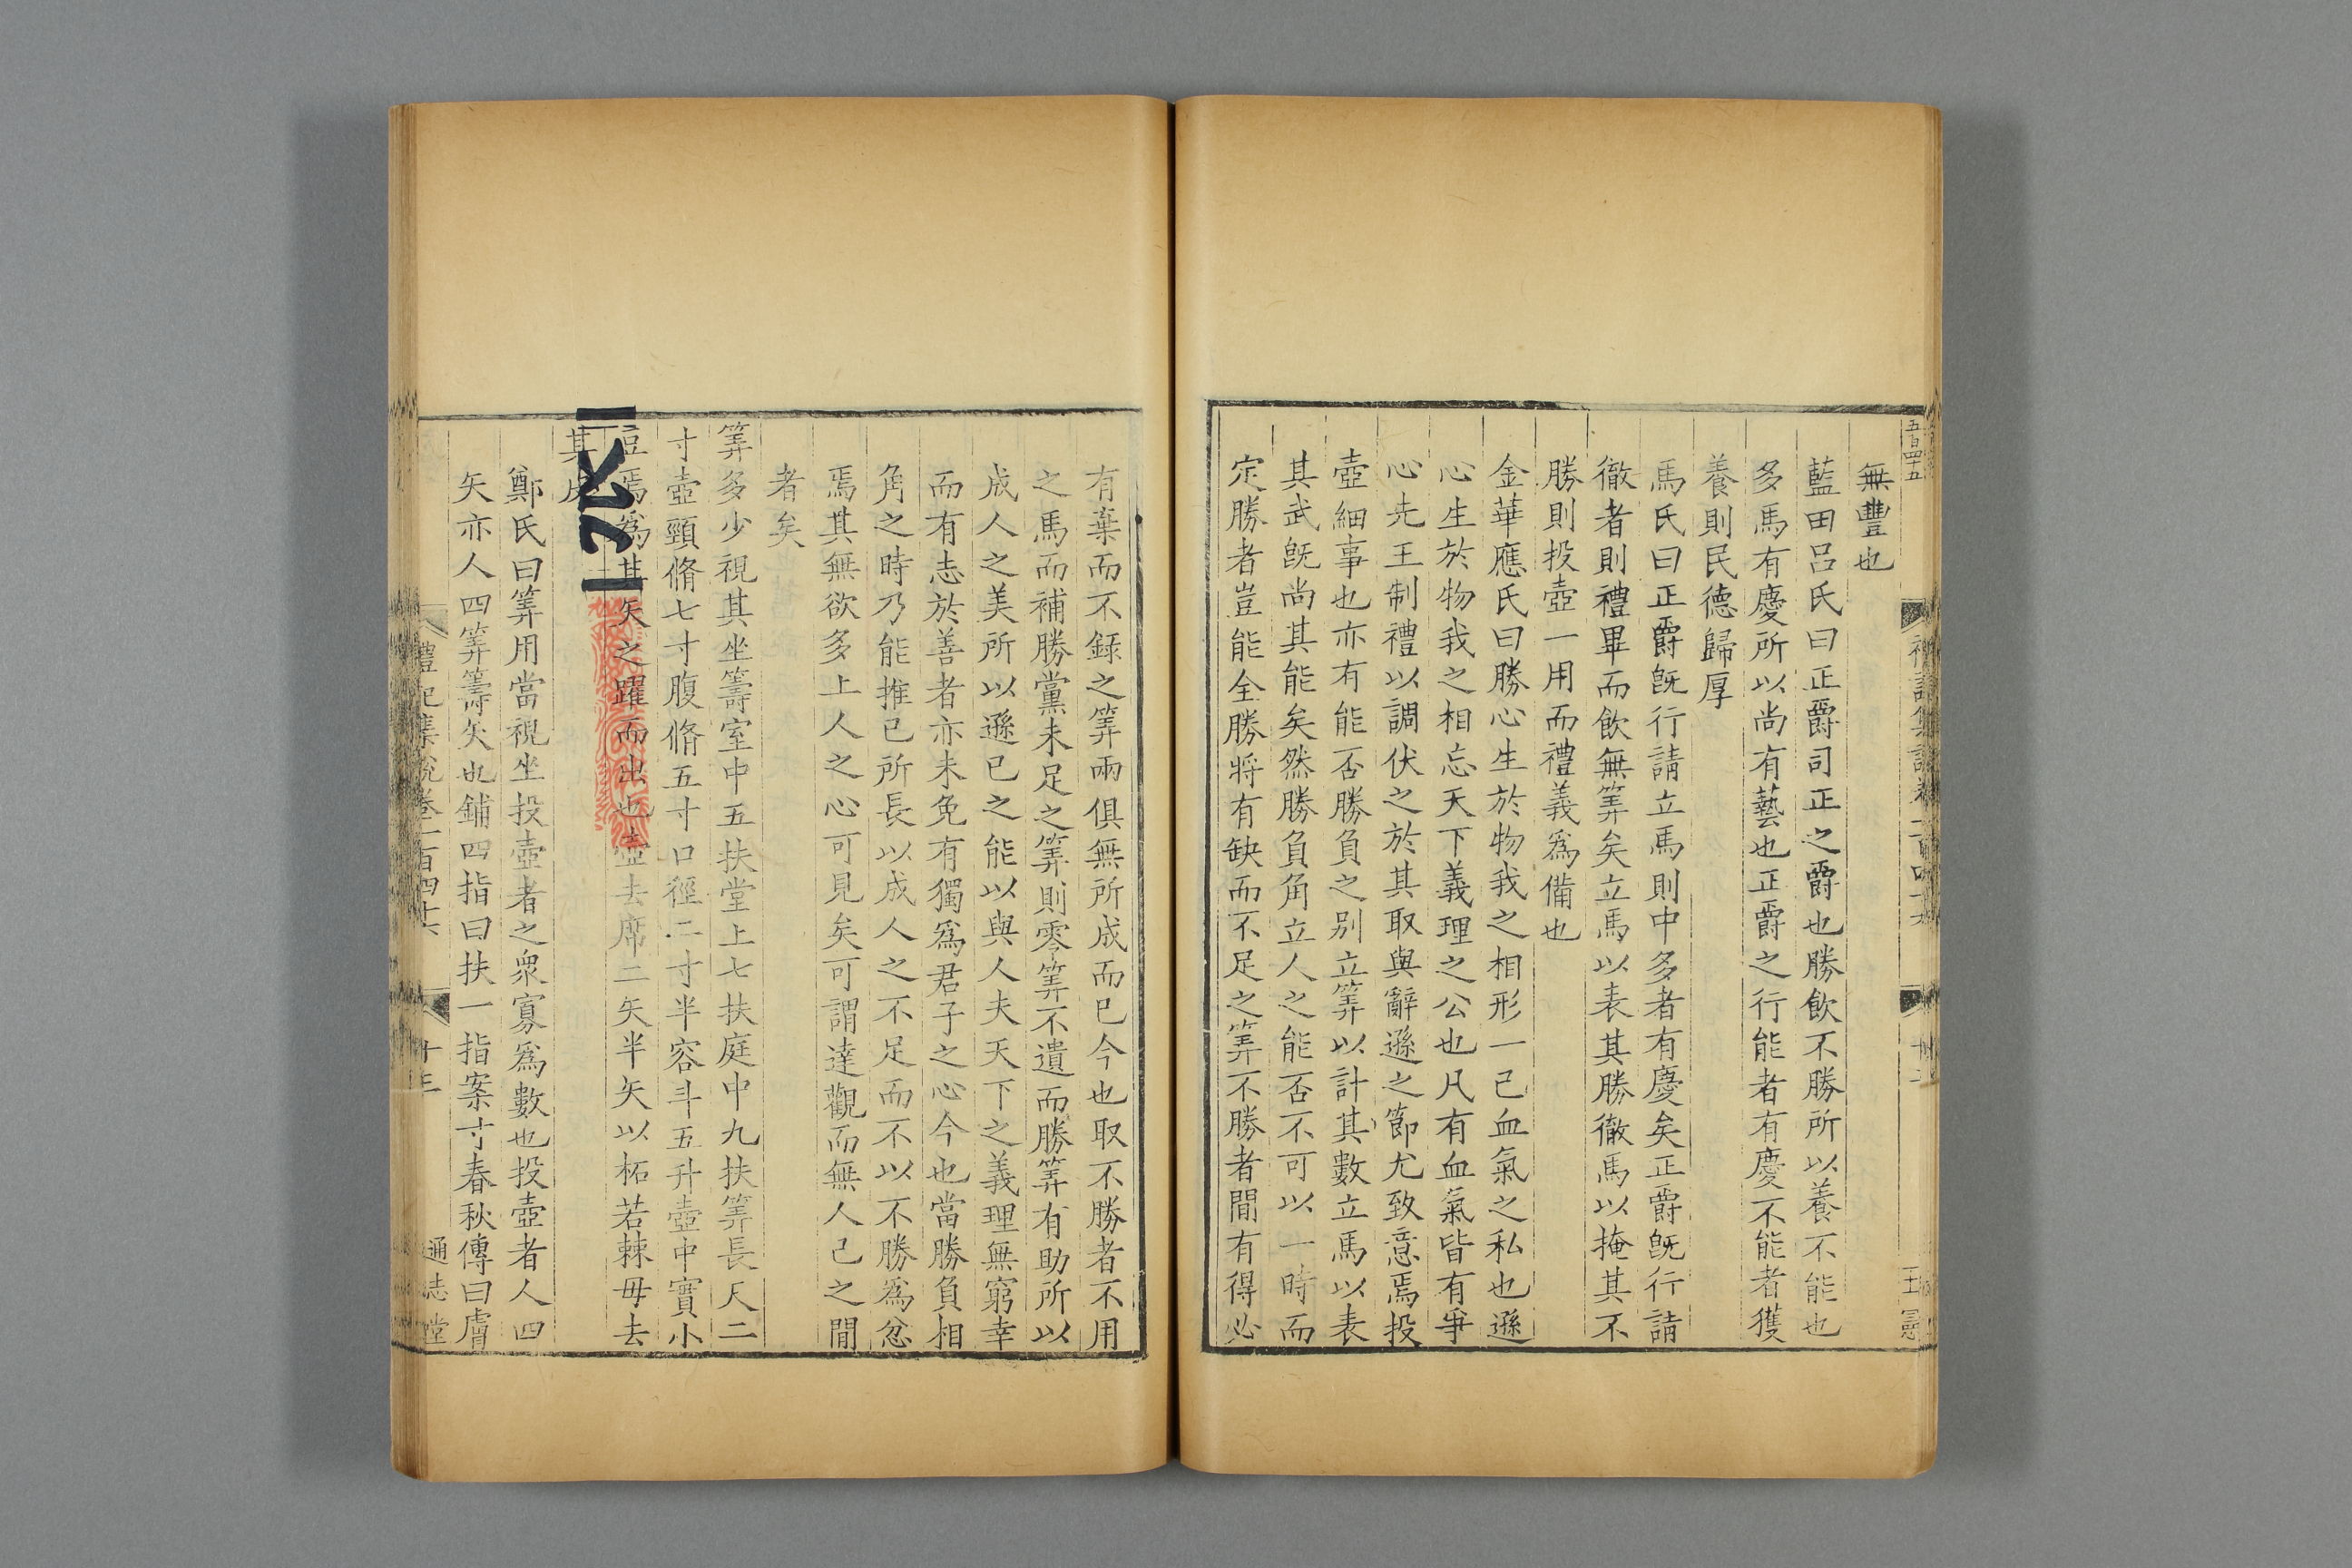 五百四十五
無豐也
藍田呂氏曰正爵司正之爵也勝飲不勝所以養不能也
多馬有慶所以尚有藝也正爵之行能者有慶不能者獲
養則民德歸厚
馬氏曰正爵旣行請立馬則中多者有慶矣正爵旣行請
徹者則禮畢而飲無筭矣立馬以表其勝徹馬以掩其不
勝則投壺一用而禮義爲備也
金華應氏曰勝心生於物我之相形一己血氣之私也遜
心生於物我之相忘天下義理之公也凡有血氣皆有爭
心先王制禮以調伏之於其取與辭遜之節尤致意焉投
壺細事也亦有能否勝負之別立筭以計其數立馬以表
其武旣尚其能矣然勝負角立人之能否不可以一時而
定勝者豈能全勝將有缺而不足之筭不勝者間有得必
有棄而不錄之筭兩俱無所成而已今也取不勝者不用
之馬而補勝黨未足之筭則零筭不遺而勝筭有助所以
成人之美所以遜已之能以與人夫天下之義理無窮幸
而有志於善者亦未免有獨爲君子之心今也當勝負相
角之時乃能推已所長以成人之不足而不以不勝爲忿
焉其無欲多上人之心可見矣可謂達觀而無人己之間
者矣
筭多少視其坐籌室中五扶堂上七扶庭中九扶筭長尺二
寸壺頸脩七寸腹脩五寸口徑二寸半容斗五升壺中實小
豆焉爲其矢之躍而出也壺去席二矢半矢以柘若棘毋去
其皮
鄭氏曰筭用當視坐投壺者之衆寡爲數也投壺者人四
矢亦人四筭籌矢也鋪四指曰扶一指案寸春秋傳曰膚
禮記集說卷一百四十六
十三
通志堂